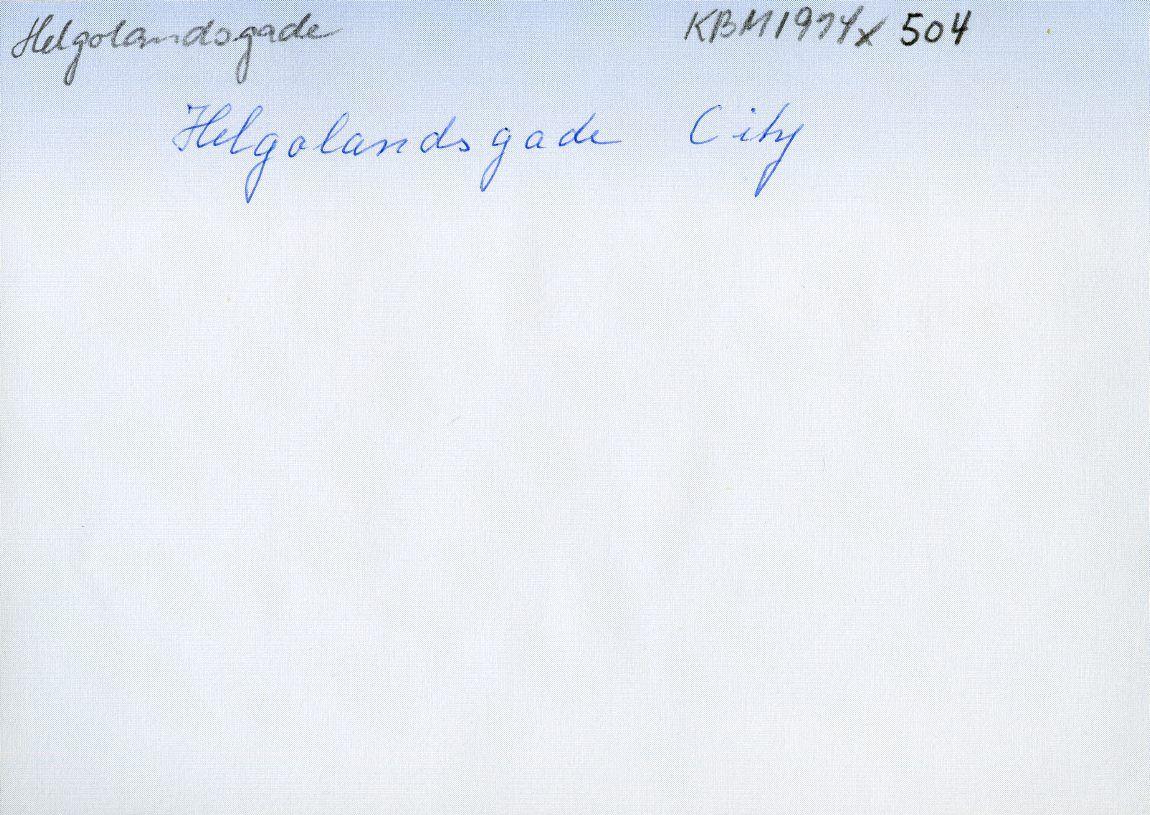 Helgolandsgade KBM1974x 504
Helgolandsgade City